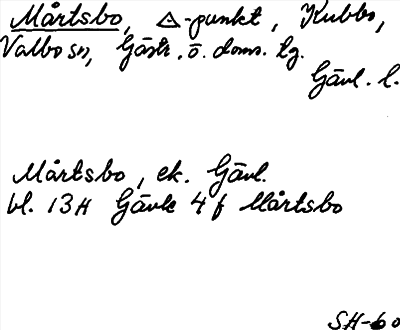 Mårtsbo, △-punkt, Kubbo,
Valbo sn, Gästr. ö. doms. tg.
Gävl. l.
Mårtsbo, ek. Gävl.
bl. 13H Gävle 4 f Mårtsbo
SH-60